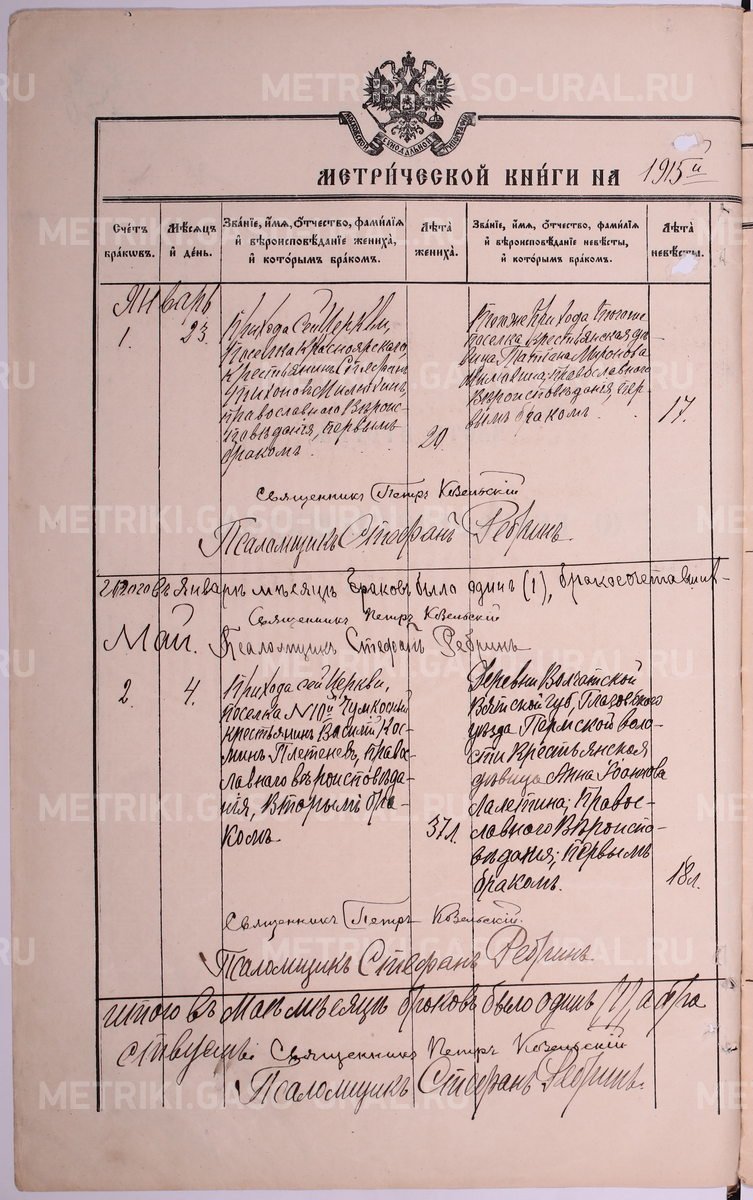 МОСКОВСКОЙ СУНОДАЛЬНОЙ ТУПОГРАФІИ
МЕТРИ́ЧЕСКОЙ КНИ́ГИ НА 1915 й
Сче́тъ бра́кωвъ.
Мѣ́сяцъ и҆ де́нь.
Зва́нїе, и҆́мѧ, ѻ҆́тчество, фами́лїѧ
и҆ вѣроисповѣ́данїе жениха̀,
и҆ кото́рымъ бра́комъ.
Лѣ́та жениха̀.
Зва́нїе, и҆́мѧ, ѻ҆́тчество, фами́лїѧ
и҆ вѣроисповѣ́данїе невѣ́сты,
и҆ кото́рымъ бра́комъ.
Лѣ́та невѣ́сты.
Январь
1.
23.
Прихода сей Церкви,
поселка Красноярскаго,
крестьянинъ Стефанъ
Тихоновъ Милютинъ,
православнаго вѣроис-
повѣданія, первымъ
бракомъ.
20.
Того же прихода
поселка крестьянская дѣ-
вица Татіана Миронова
православнаго
вѣроисповѣданія, пер-
вымъ бракомъ.
17.
Священникъ Петръ Козельскій
Псаломщикъ Стефанъ Ребринъ.
Итого въ Январѣ мѣсяцѣ браковъ было одинъ (1),
Священникъ Петръ Козельскій
Май.
Псаломщикъ Стефанъ Ребринъ
2.
4.
Прихода сей Церкви,
поселка N 10й
крестьянинъ Василій Кос-
минъ Плетеневъ, право-
славнаго вѣроисповѣда-
нія, вторымъ бра-
комъ.
37 л.
Деревни Волчатской
Вятской губ, Глазовскаго
уѣзда Пермской воло-
сти крестьянская
дѣвица Анна Іоаннова
Лалетина; право-
славнаго вѣроиспо-
вѣданія; первымъ
бракомъ.
18 л.
Священникъ Петръ Козельскій.
Псаломщикъ Стефанъ Ребринъ.
Итого въ Маѣ мѣсяцѣ браковъ было одинъ (1) а бра
Священникъ Петръ Козельскій
Псаломщикъ Стефанъ Ребринъ.
METRIKI.GASO-URAL.RU